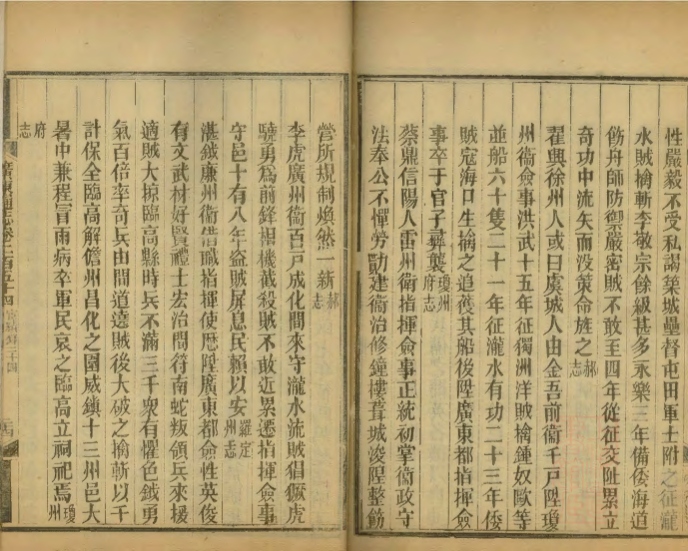 性嚴毅不受私謁築城壘督屯田軍士附之征瀧
水賊擒斬李敬宗餘級甚多永樂三年備倭海道
飭舟師防禦嚴密賊不敢至四年從征交阯累立
奇功中流矢而没策命旌之郝志
翟興徐州人或曰虞城人由金吾前衞千戸陞瓊
州衞僉事洪武十五年征獨洲洋賊擒鍾奴歐等
並船六十隻二十一年征瀧水有功二十三年倭
賊寇海口生擒之追獲其船後陞廣東都指揮僉
事卒于官子彞襲瓊州府志
蔡鼎信陽人雷州衞指揮僉事正統初掌衞政守
法奉公不憚勞勩建衞治修鐘樓葺城浚隍整飭
營所規制煥然一新郝志
李虎廣州衞百戸成化間來守瀧水流賊猖獗虎
驍勇爲前鋒相機截殺賊不敢近累遷指揮僉事
守邑十有八年盜賊屏息民賴以安羅定州志
湛鉞廉州衞借職指揮使歴陞廣東都僉性英俊
有文武材好賢禮士宏治間符南蛇叛領兵來援
適賊大掠臨高縣時兵不滿三千衆有懼色鉞勇
氣百倍率奇兵由間道遶賊後大破之擒斬以千
計保全臨高解儋州昌化之圍威鎮十三州邑大
暑中兼程冒雨病卒軍民哀之臨高立祠祀焉瓊州
府志
廣東通志卷二百五十四 宦績錄二十四